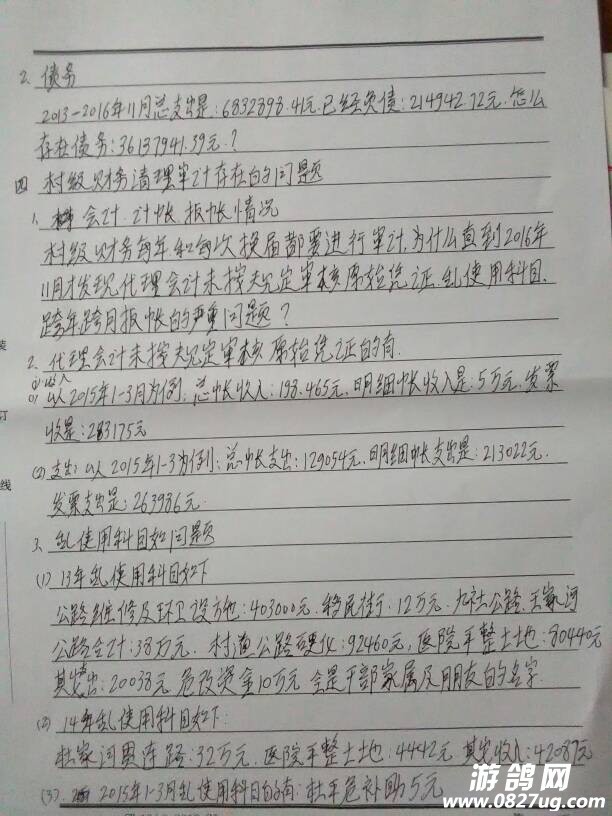 2. 债务
2013-2016年11月总支出是:6832898.41元.已经负债:214942.72元.怎么
存在债务:36137941.39元.?
四 村级财务清理审计存在的问题
1. 会计.计帐.报帐情况
村级财务每年和每次换届都要进行审计.为什么直到2016年
11月才发现代理会计未按规定审核原始凭证.乱使用科目.
跨年跨月报帐的严重问题?
2. 代理会计未按规定审核原始凭证的有
(1) 收入
以2015年1-3月为例:总帐收入:198.465元.明细帐收入是:5万元.发票
收是:283175元
(2) 支出:以2015年1-3为例:总帐支出:129054元.明细帐支出是:213022元.
发票支出是:263986元.
3. 乱使用科目如问题
(1) 13年乱使用科目如下
公路维修及环卫设施:403000元.移民街:12万元.九社公路.王家河
公路合计:38万元. 村道公路硬化:92460元,医院平整土地:80440元
其它支出:20038元 危改资金10万元 全是干部家属及朋友的名字.
(2) 14年乱使用科目如下:
杜家河累连路:32万元.医院平整土地:4442元.其它收入:42089元
(3). 2015年1-3月乱使用科目的有:杜平危补助5元
装
订
线
游鸽网
www.0827ug.com